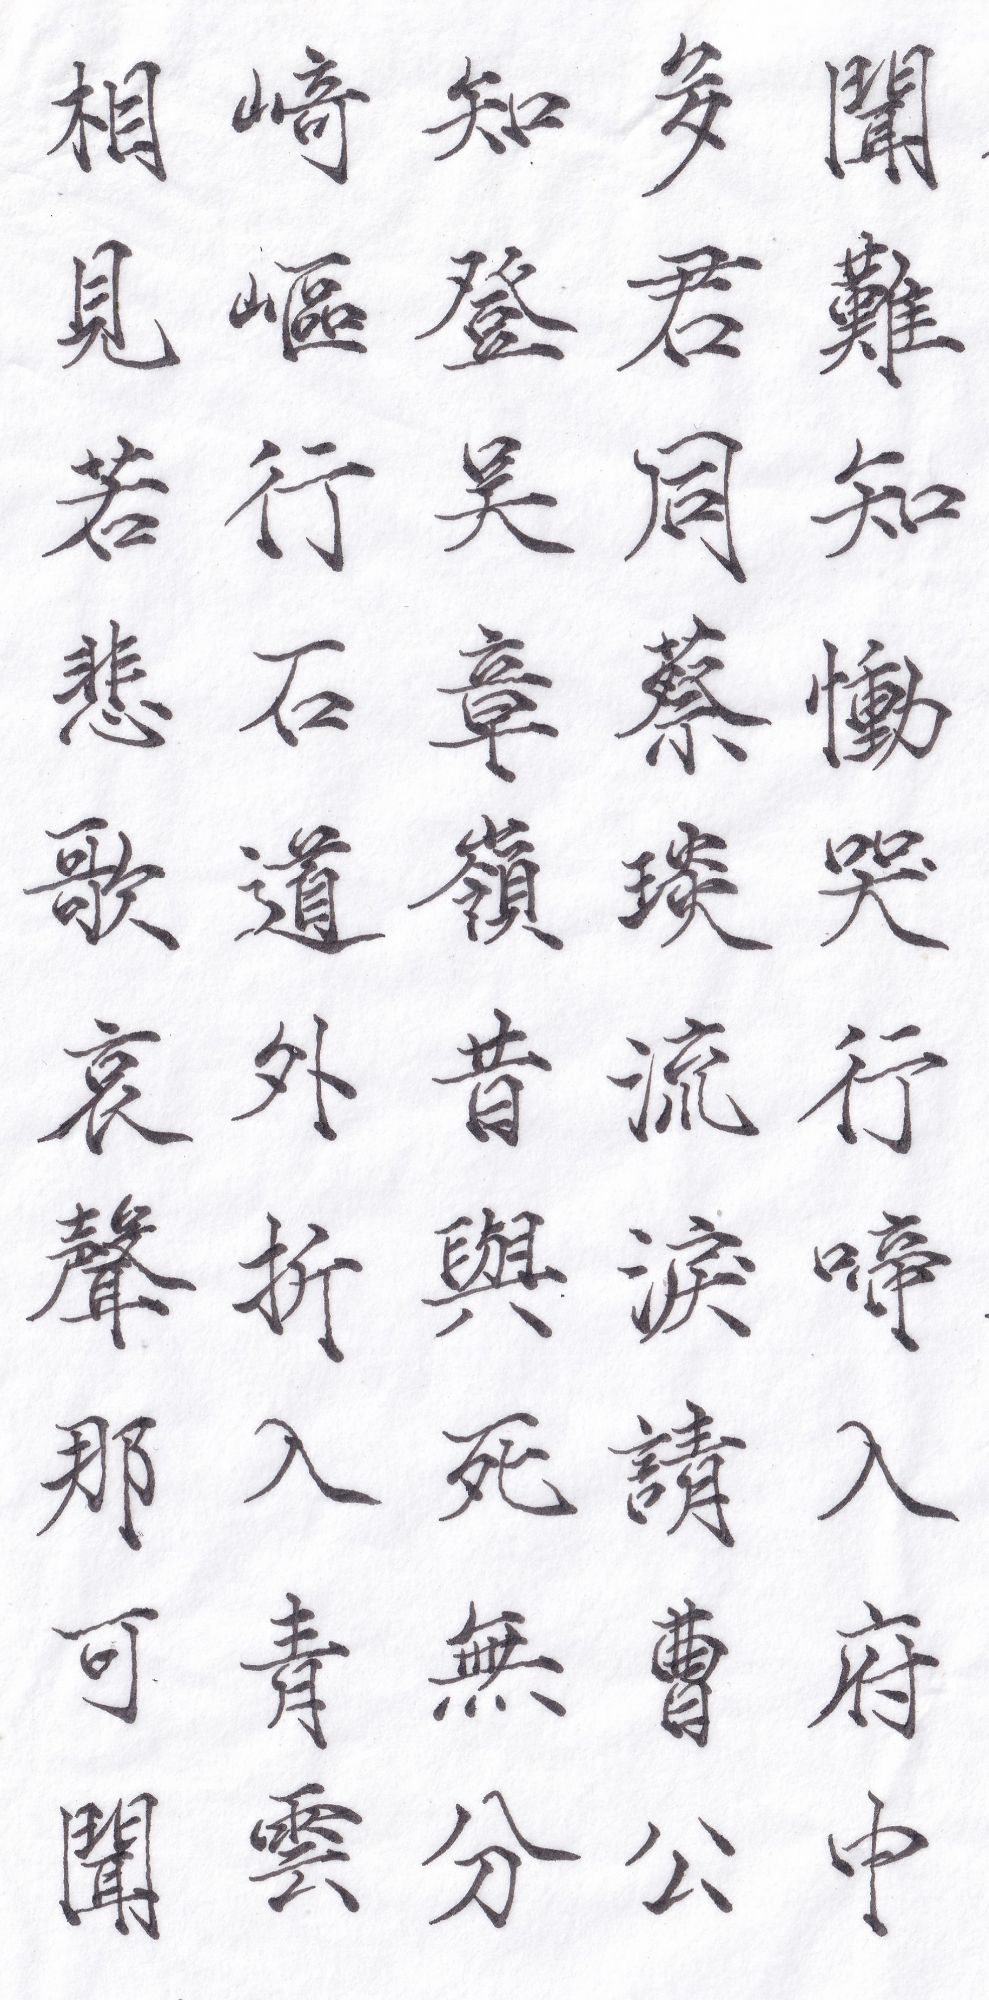 聞難知慟哭行啼入府中
多君同蔡琰流淚請曹公
知登吳章嶺昔與死無分
崎嶇行石道外折入青雲
相見若悲歌哀聲那可聞